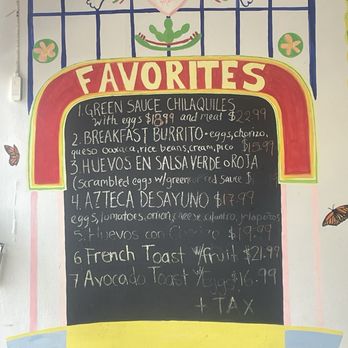 FAVORITES
1. GREEN SAUCE CHILAQUILES
with eggs $18.99 and meat $22.99
2. BREAKFAST BURRITO - eggs, chorizo,
queso oaxaca, rice, beans, cream, pico $15.99
3 HUEVOS EN SALSA VERDE o ROJA
(scrambled eggs w/green red sauce $
4. AZTECA DESAYUNO $17.99
eggs, tomatoes, onion, cheese, cilantro, jalapeños
5. Huevos con $19.99
6 French Toast w/fruit $21.99
7 Avocado Toast w/Eggs $16.99
+ TAX